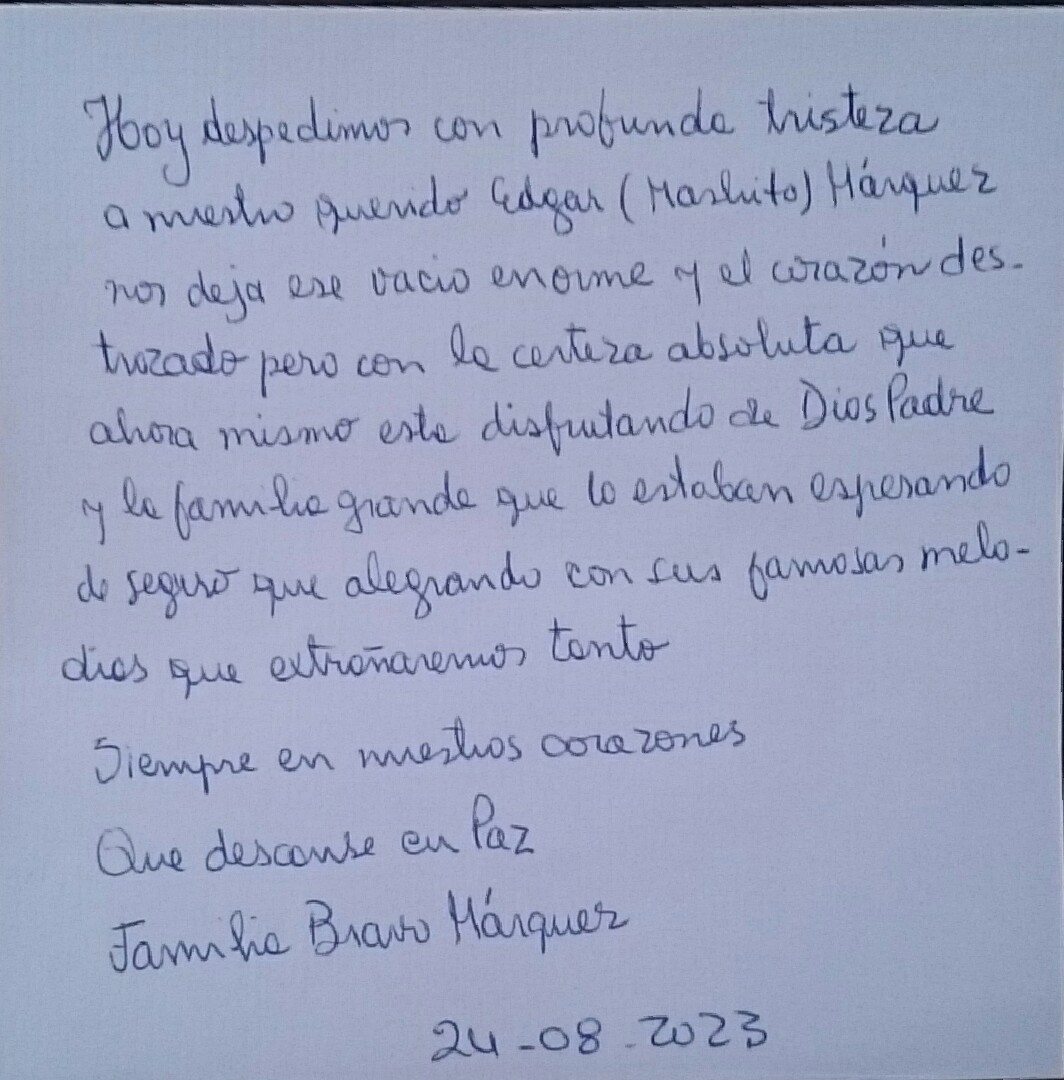 Hoy despedimos con profunda tristeza
a nuestro querido Edgar (Mashito) Márquez
nos deja ese vacio enorme y el corazón des-
trozado pero con la certeza absoluta que
ahora mismo esta disfrutando de Dios Padre
y la familia grande que lo estaban esperando
de seguro que alegrando con sus famosas melo-
dias que extrañaremos tanto
Siempre en nuestros corazones
Que descanse en Paz
Familia Bravo Márquez
24-08-2023